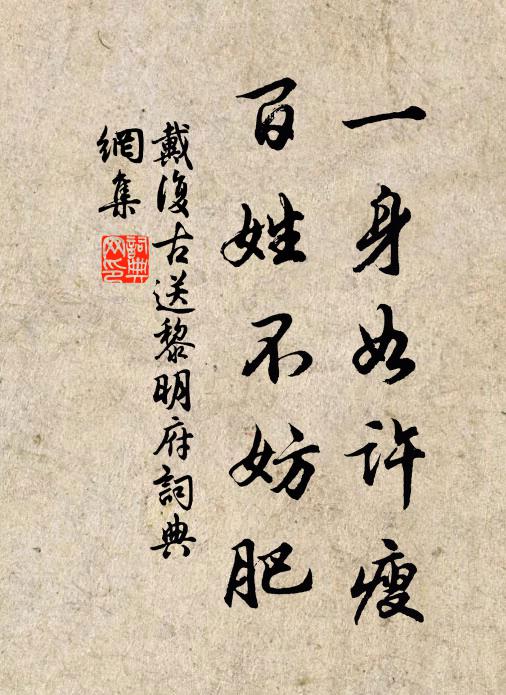 一身如許瘦
百姓不妨肥
戴復古送黎明府詞典
網集
詞典網印